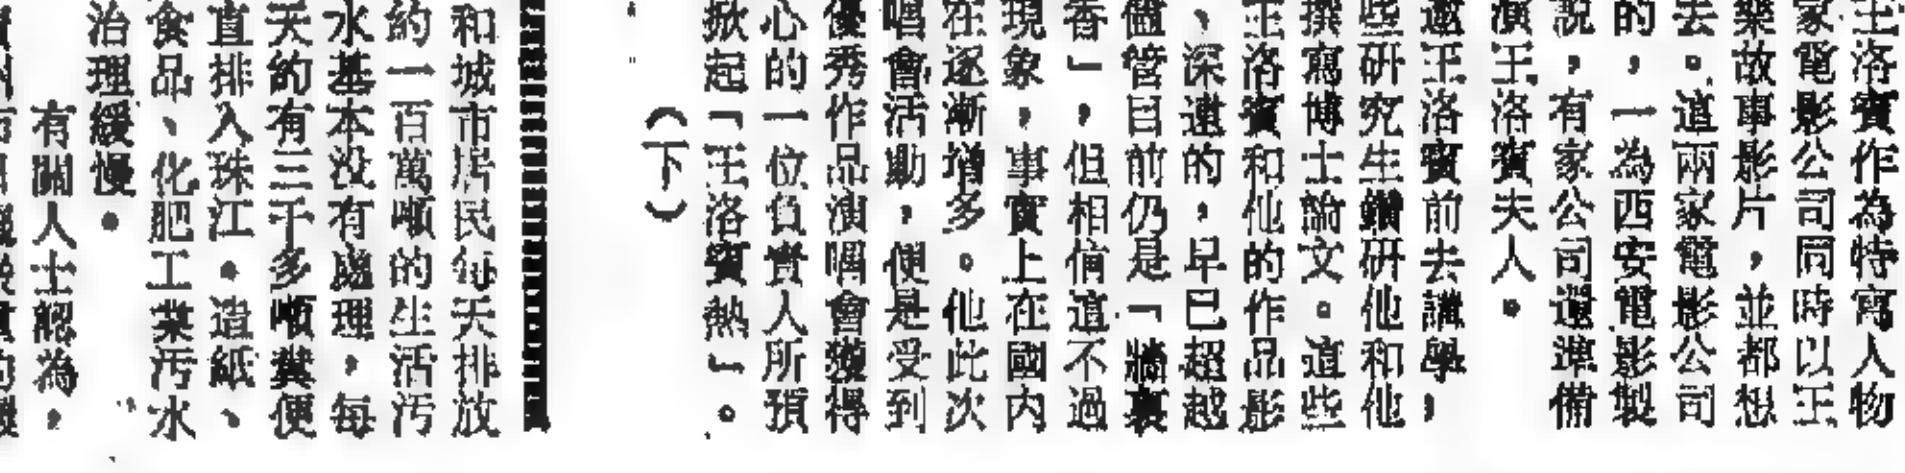 王洛賓作為特寫人物
家電影公司同時以王
樂故事影片，並都想
去。這兩家電影公司
的，一為西安電影製
說，有家公司還準備
演王洛賓夫人。
邀王洛賓前去講學，
些研究生鑽研他和他
撰寫博士論文。這些
王洛賓和他的作品影
、深遠的，早已超越
儘管目前仍是「牆裏
香」，但相信這不過
現象，事實上在國內
在逐漸增多。他此次
唱會活動，便是受到
優秀作品演唱會獲得
心的一位負責人所預
掀起「王洛賓熱」。
（下）
和城市居民每天排放
約一百萬噸的生活污
水基本沒有處理，每
天約有三千多噸糞便
直排入珠江。造紙、
食品、化肥工業污水
治理緩慢。
有關人士認為，